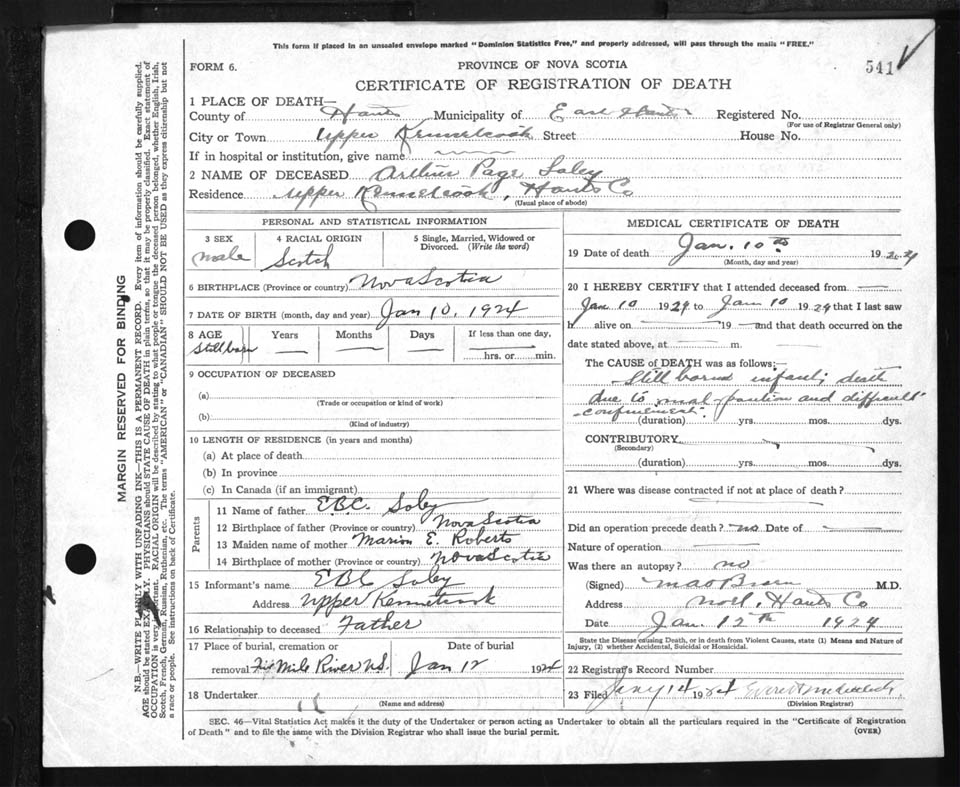 This form if placed in an unsealed envelope marked "Dominion Statistics Free," and properly addressed, will pass through the mails "FREE."
FORM 6.
PROVINCE OF NOVA SCOTIA
541
CERTIFICATE OF REGISTRATION OF DEATH
1 PLACE OF DEATH—
County of Hants Municipality of East Hants Registered No.
(For use of Registrar General only)
City or Town Upper Kennetcook Street House No.
If in hospital or institution, give name
2 NAME OF DECEASED Arthur Page Soley
Residence Upper Kennetcook, Hants Co
(Usual place of abode)
PERSONAL AND STATISTICAL INFORMATION
3 SEX
male
4 RACIAL ORIGIN
Scotch
5 Single, Married, Widowed or Divorced. (Write the word)
6 BIRTHPLACE (Province or country) Nova Scotia
7 DATE OF BIRTH (month, day and year) Jan 10, 1924
8 AGE Years Months Days If less than one day,
Stillborn
hrs. or min.
9 OCCUPATION OF DECEASED
(a)
(Trade or occupation or kind of work)
(b)
(Kind of industry)
10 LENGTH OF RESIDENCE (in years and months)
(a) At place of death
(b) In province
(c) In Canada (if an immigrant)
Parents
11 Name of father E.B.C. Soley
12 Birthplace of father (Province or country) Nova Scotia
13 Maiden name of mother Marion E. Roberts
14 Birthplace of mother (Province or country) Nova Scotia
15 Informant's name EBC Soley
Address Upper Kennetcook
16 Relationship to deceased Father
17 Place of burial, cremation or Date of burial
removal Mile River N.S. Jan 12 1924
18 Undertaker
(Name and address)
MEDICAL CERTIFICATE OF DEATH
19 Date of death Jan. 10th 19
(Month, day and year)
20 I HEREBY CERTIFY that I attended deceased from
Jan. 10 1924 to Jan 10 1924 that I last saw
h alive on 19 and that death occurred on the
date stated above, at m.
The CAUSE of DEATH was as follows:—
Still born infant; death
due to mal-position and difficult
confinement.
(duration) yrs. mos. dys.
CONTRIBUTORY
(Secondary)
(duration) yrs. mos. dys.
21 Where was disease contracted if not at place of death?
Did an operation precede death? no Date of
Nature of operation
Was there an autopsy? no
(Signed) M.D.
Address Noel, Hants Co
Date Jan. 12th 1924
State the Disease causing Death, or in death from Violent Causes, state (1) Means and Nature of Injury, (2) whether Accidental, Suicidal or Homicidal.
22 Registrar's Record Number
23 Filed Jany 14 1924
(Division Registrar)
SEC. 46—Vital Statistics Act makes it the duty of the Undertaker or person acting as Undertaker to obtain all the particulars required in the "Certificate of Registration
of Death" and to file the same with the Division Registrar who shall issue the burial permit.
(OVER)
MARGIN RESERVED FOR BINDING
N.B.—WRITE PLAINLY WITH UNFADING INK—THIS IS A PERMANENT RECORD. Every item of information should be carefully supplied.
AGE should be stated EXACTLY. PHYSICIANS should STATE CAUSE OF DEATH in plain terms, so that it may be properly classified. Exact statement of
OCCUPATION is very important. RACIAL ORIGIN will be described by stating to what people or tongue the deceased person belonged, whether English, Irish,
Scotch, French, German, Russian, Ruthenian, etc. The terms "AMERICAN" or "CANADIAN" SHOULD NOT BE USED as they express citizenship but not
a race or people. See instructions on back of Certificate.